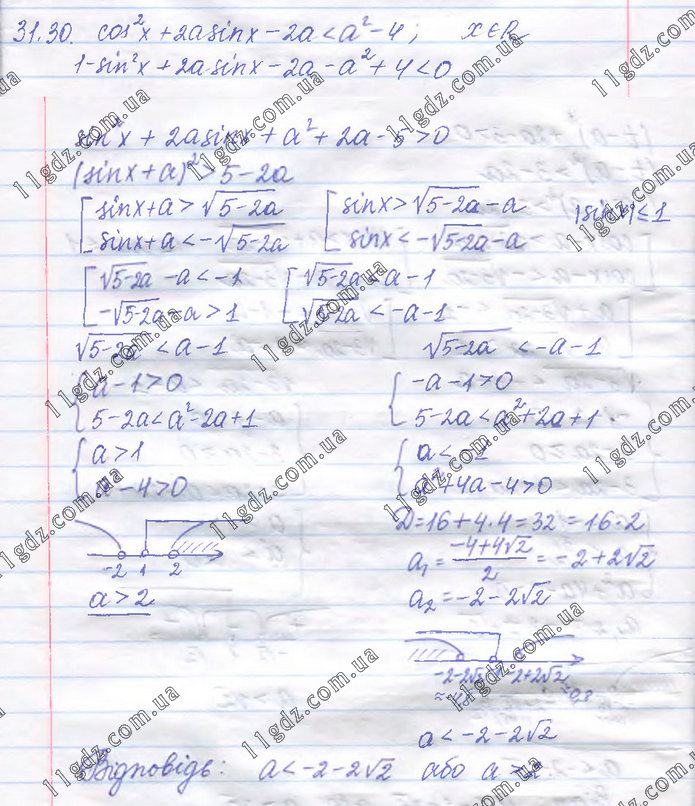 31.30. cos²x + 2a sinx - 2a < a² - 4; x∈R
1 - sin²x + 2a sinx - 2a - a² + 4 < 0
sin²x + 2a sinx + a² + 2a - 5 > 0
(sinx + a)² > 5 - 2a
[ sinx + a > √(5-2a) [ sinx > √(5-2a) - a |sinx| ≤ 1
[ sinx + a < -√(5-2a) [ sinx < -√(5-2a) - a
[ √(5-2a) - a < -1 [ √(5-2a) < a - 1
[ -√(5-2a) - a > 1 [ √(5-2a) < -a - 1
√(5-2a) < a - 1 √(5-2a) < -a - 1
{ a - 1 > 0 { -a - 1 > 0
{ 5 - 2a < a² - 2a + 1 { 5 - 2a < a² + 2a + 1
{ a > 1 { a < -1
{ a² - 4 > 0 { a² + 4a - 4 > 0
D = 16 + 4·4 = 32 = 16·2
-2 1 2 a₁ = (-4+4√2)/2 = -2 + 2√2
a > 2 a₂ = -2 - 2√2
-2-2√2 -2+2√2
a < -2 - 2√2
Відповідь: a < -2 - 2√2 або a > 2
11gdz.com.ua